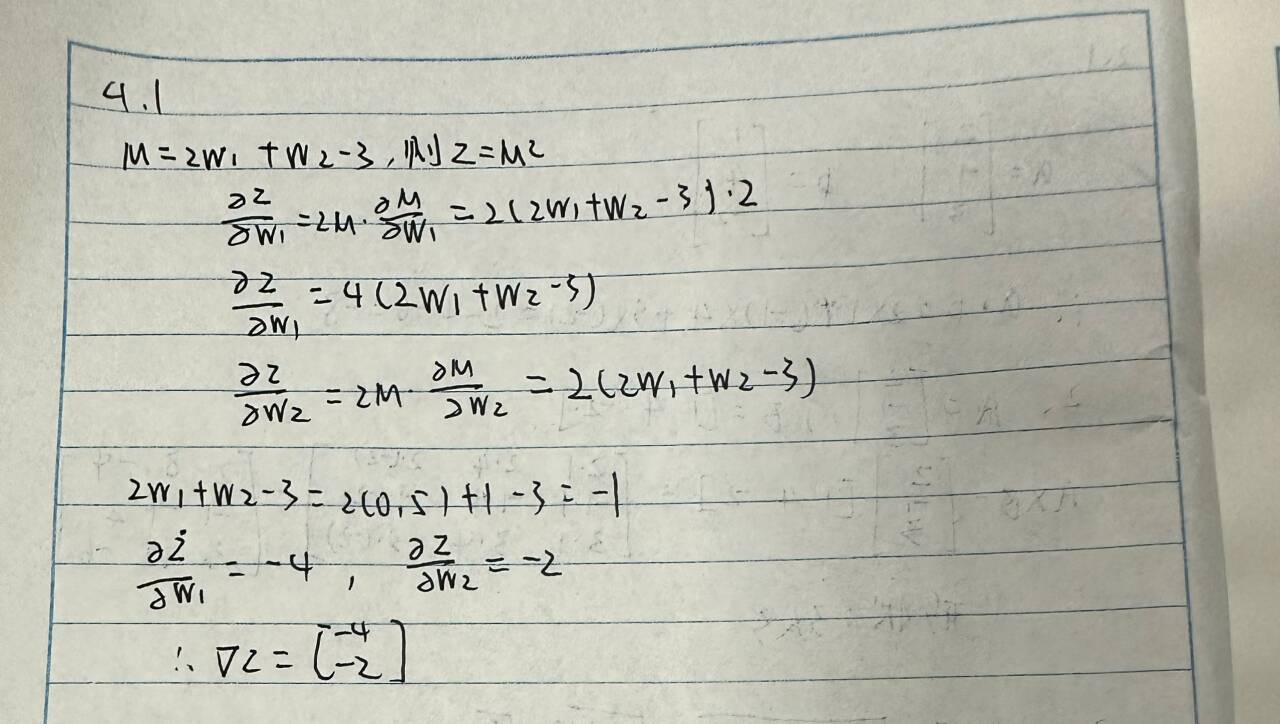 4.1
M = 2W₁ + W₂ - 3 , 则 Z = M²
∂Z/∂W₁ = 2M · ∂M/∂W₁ = 2(2W₁ + W₂ - 3) · 2
∂Z/∂W₁ = 4(2W₁ + W₂ - 3)
∂Z/∂W₂ = 2M · ∂M/∂W₂ = 2(2W₁ + W₂ - 3)
2W₁ + W₂ - 3 = 2(0.5) + 1 - 3 = -1
∂Z/∂W₁ = -4 , ∂Z/∂W₂ = -2
∴ ∇Z = [-4 -2]